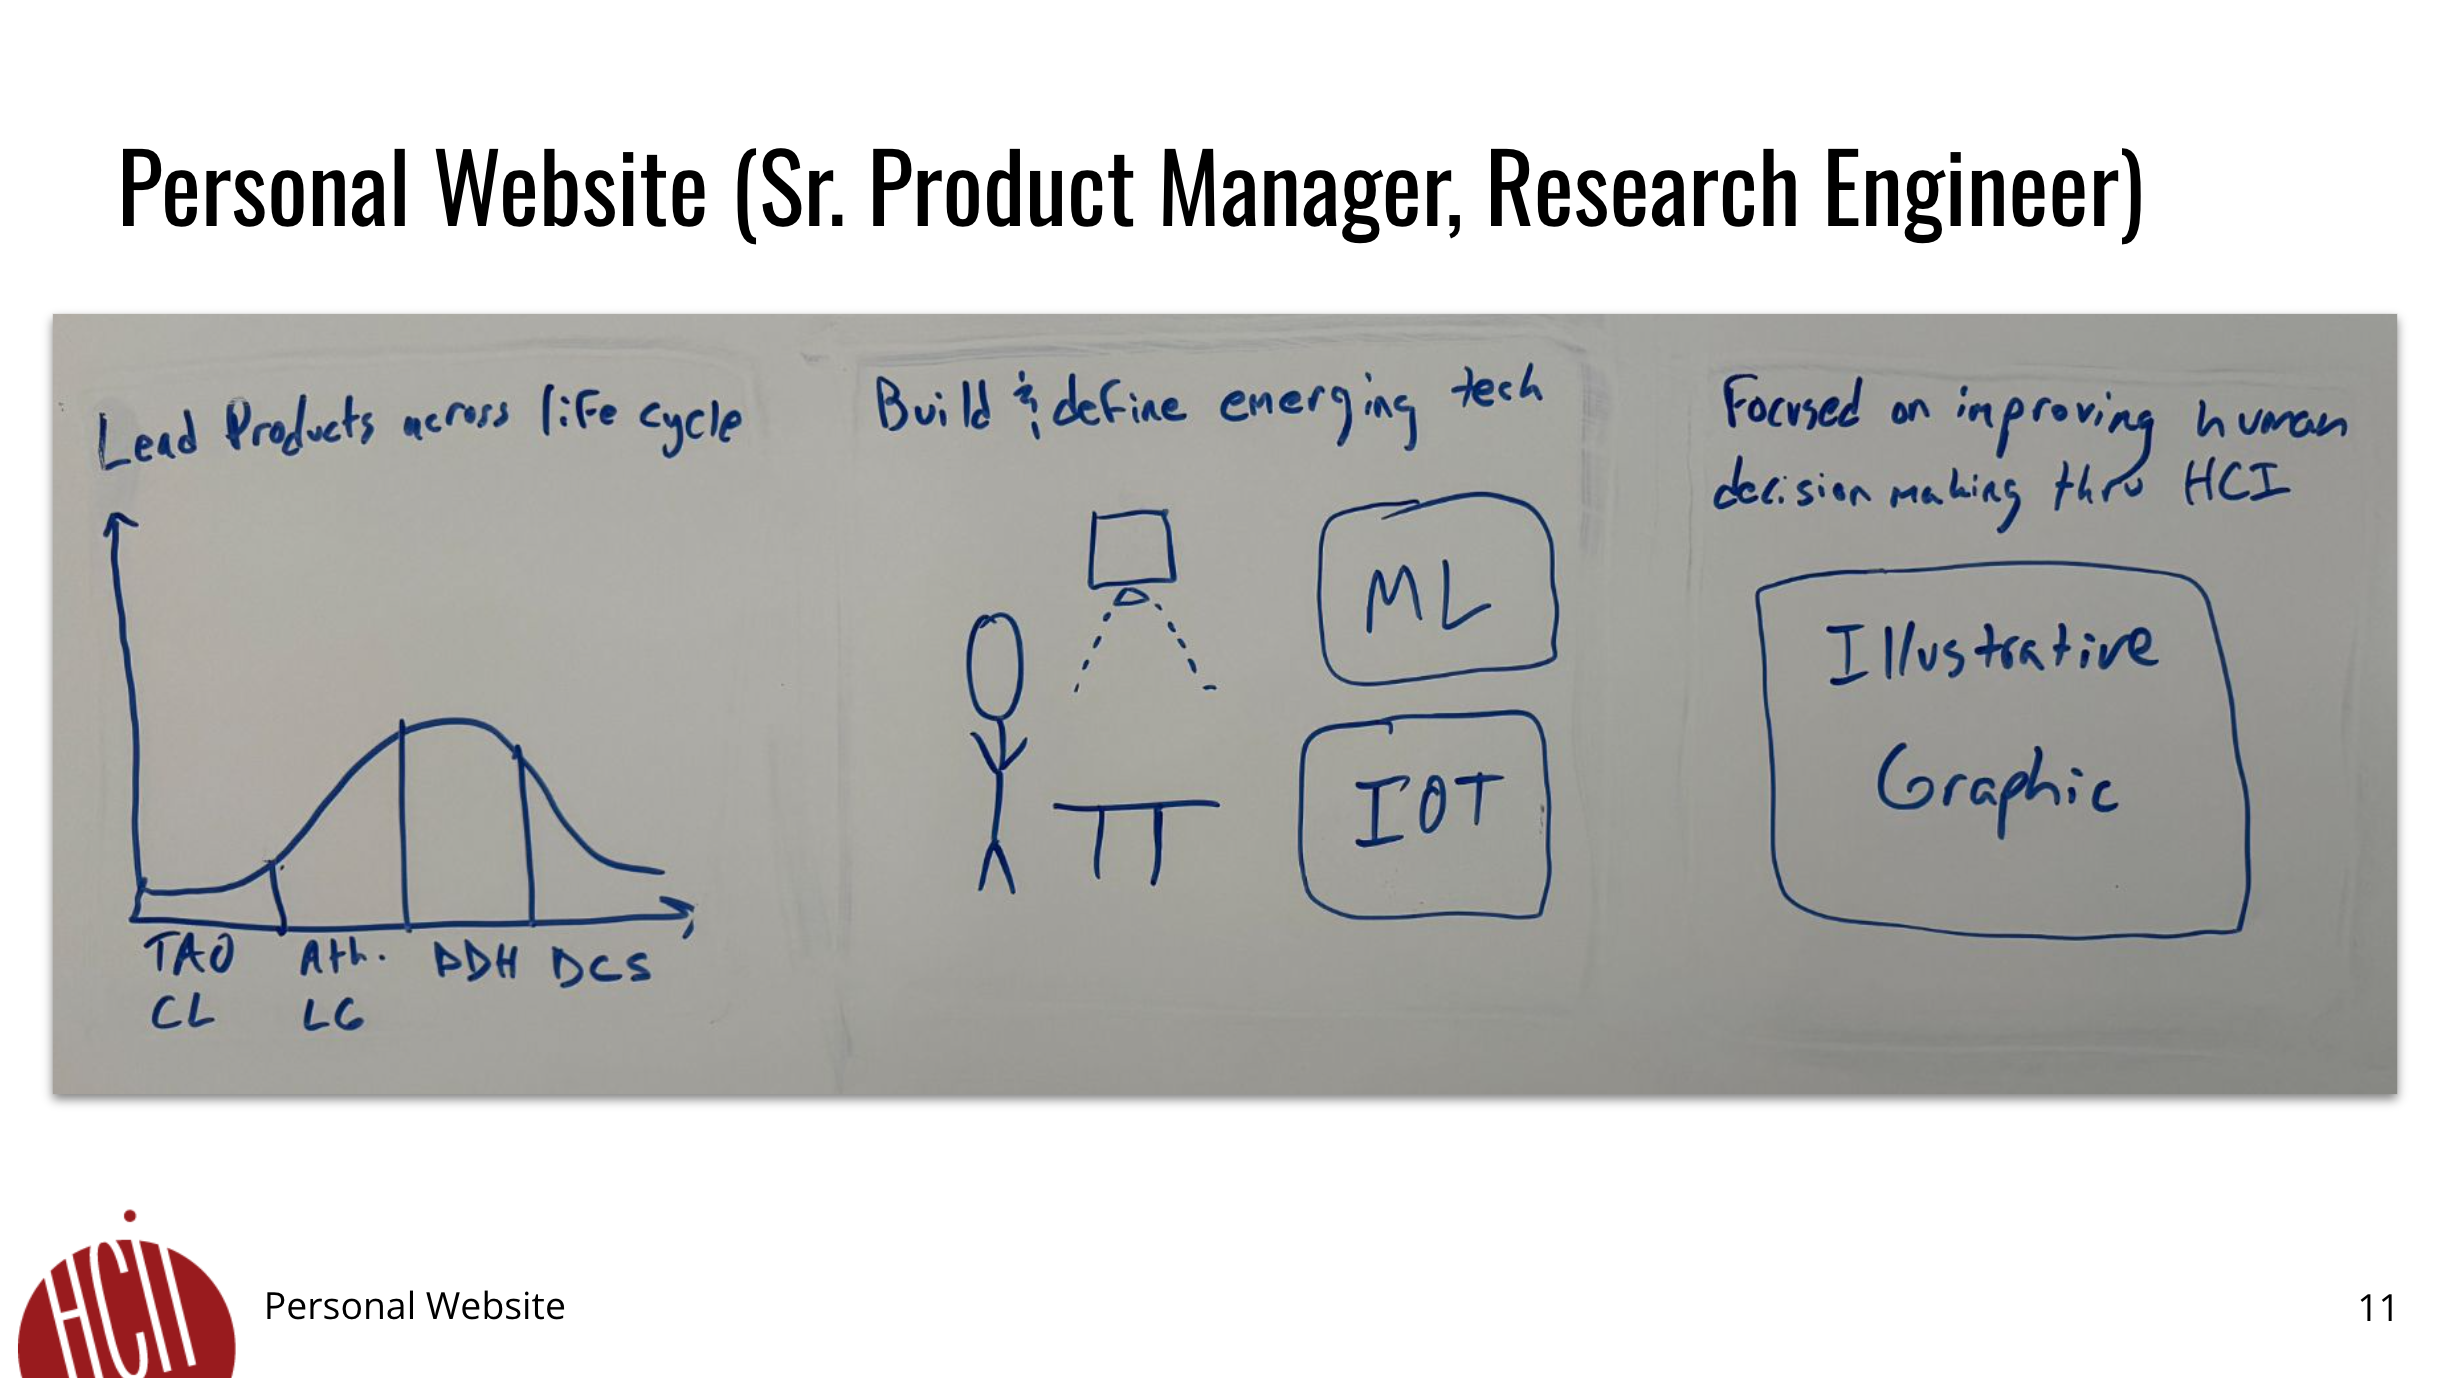 Personal Website (Sr. Product Manager, Research Engineer)
Lead Products across life cycle
TAO Ath. DDH DCS
CL LG
Build & define emerging tech
ML
IOT
Focused on improving human
decision making thru HCI
Illustrative
Graphic
HCII
Personal Website
11